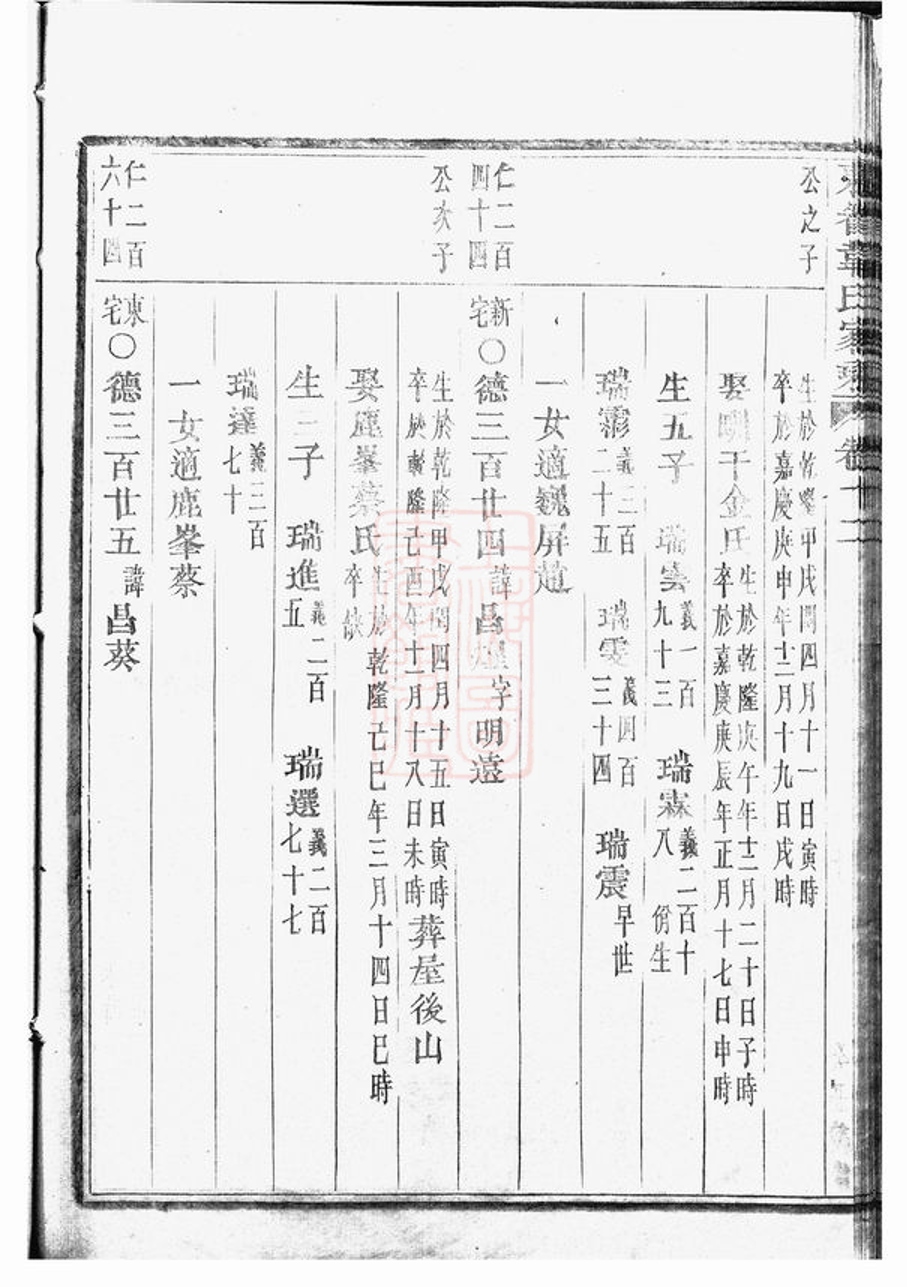 氏家乘 卷十二
公之子
生於乾隆甲戌閏四月十一日寅時
卒於嘉慶庚申年十二月十九日戌時
娶 干金氏 生於乾隆庚午年十二月二十日子時
卒於嘉慶庚辰年正月十七日申時
生五子 瑞雲 義一百九十三 瑞霖 義二百十八 份生
瑞霶 義三百二十五 瑞雯 義四百三十四 瑞震 早世
一女適巍屏趙
仁二百四十四
公次子
新宅〇德三百廿四 諱昌 字明遠
生於乾隆甲戌閏四月十五日寅時
卒於乾隆己酉年十二月十八日未時 葬屋後山
娶鹿峯蔡氏 生於乾隆己巳年三月十四日巳時
卒缺
生三子 瑞進 義二百五 瑞選 義二百七十七
瑞達 義三百七十
一女適鹿峯蔡
仁二百六十四
東宅〇德三百廿五 諱昌葵